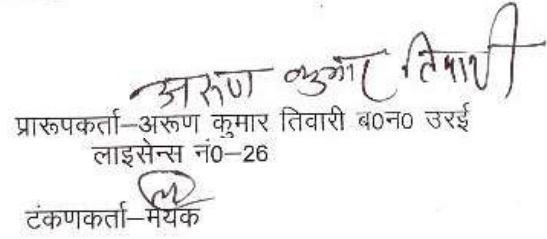 अरुण कुमार तिवारी
प्रारूपकर्ता–अरूण कुमार तिवारी ब0न0 उरई
लाइसेन्स नं0–26
टंकणकर्ता–मयंक